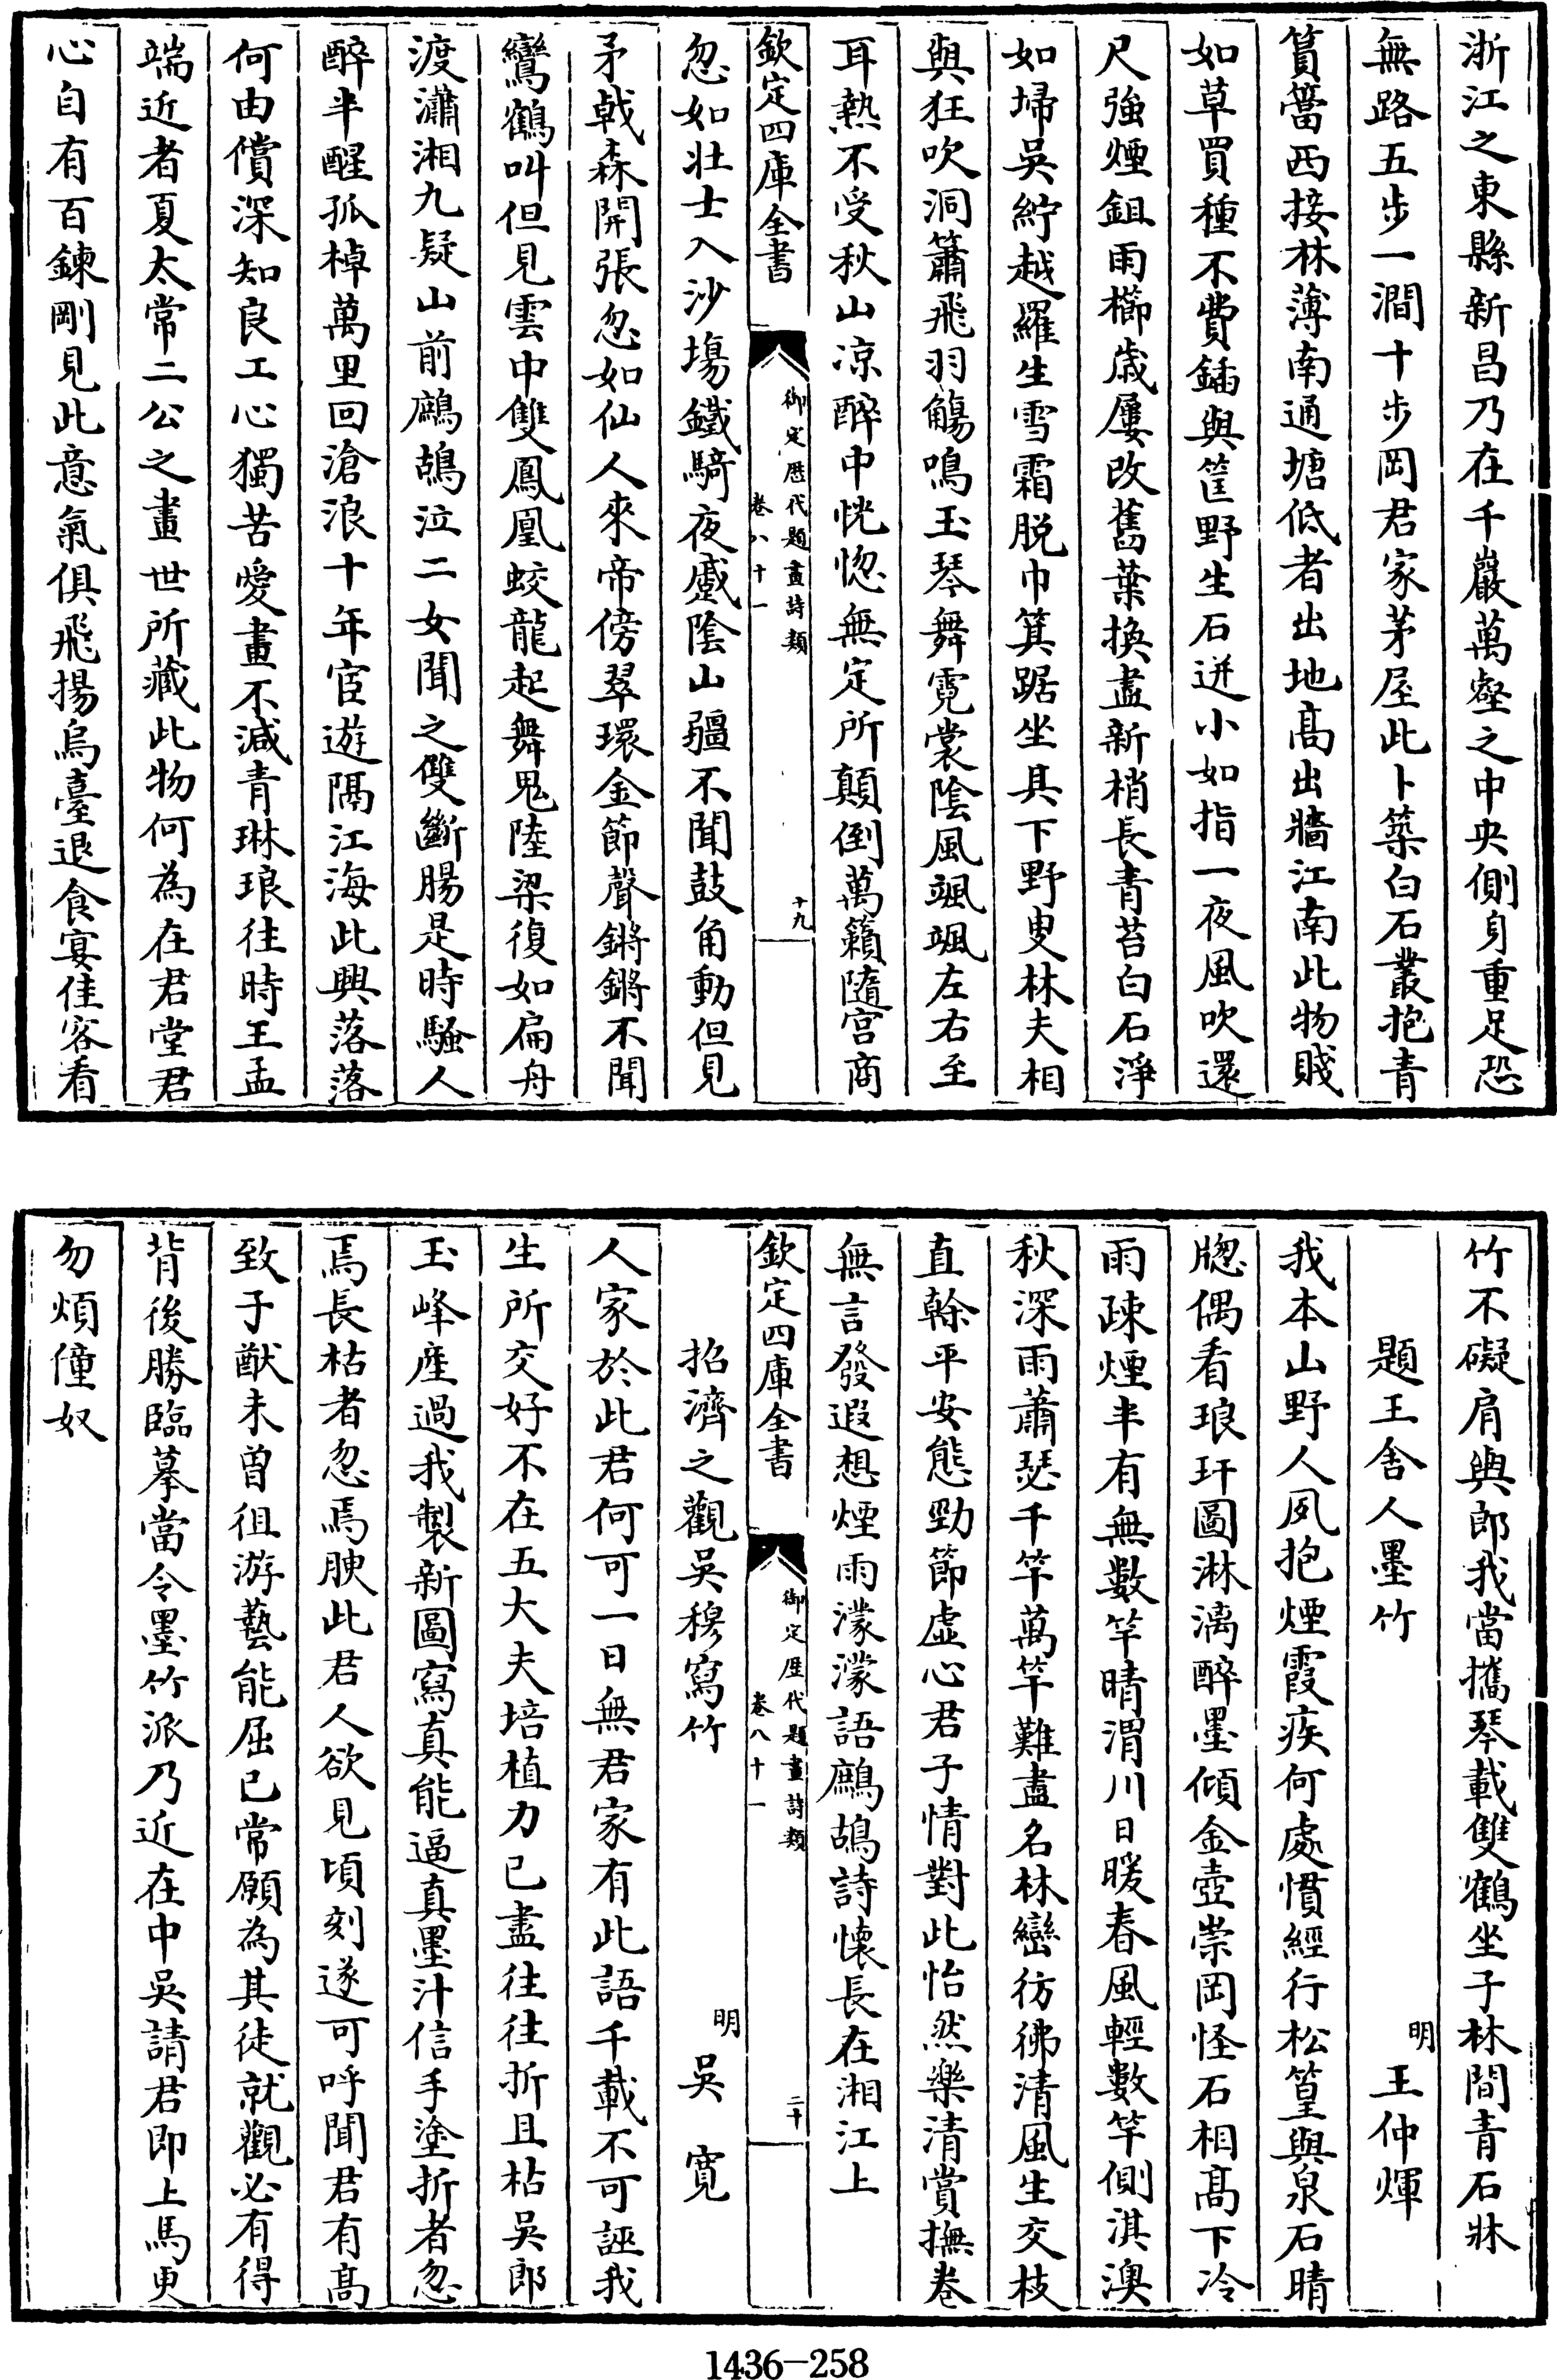 浙江之東縣新昌乃在千巖萬壑之中央側身重足恐
無路五步一澗十步岡君家茅屋此卜築白石叢抱青
篔簹西接林薄南通塘低者出地髙出牆江南此物賤
如草買種不費鍤與筐野生石迸小如指一夜風吹還
尺強煙鉏雨櫛歲屢改舊葉換盡新梢長青苔白石淨
如埽吳紵越羅生雪霜脱巾箕踞坐其下野叟林夫相
與狂吹洞簫飛羽觴鳴玉琴舞霓裳隂風颯颯左右至
耳熱不受秋山凉醉中恍惚無定所顛倒萬籟隨宫商
欽定四庫全書
御定歴代題畫詩類
卷八十一
十九
忽如壯士入沙塲鐵騎夜蹙隂山疆不聞鼓角動但見
矛戟森開張忽如仙人來帝傍翠環金節聲鏘鏘不聞
鸞鶴叫但見雲中雙鳳凰蛟龍起舞鬼陸梁復如扁舟
渡瀟湘九疑山前鷓鴣泣二女聞之雙斷腸是時騷人
醉半醒孤棹萬里回滄浪十年宦遊隔江海此興落落
何由償深知良工心獨苦愛畫不減青琳琅往時王孟
端近者夏太常二公之畫世所藏此物何為在君堂君
心自有百鍊剛見此意氣俱飛揚烏臺退食宴佳客看
竹不礙肩輿郎我當攜琴載雙鶴坐子林間青石牀
題王舍人墨竹
明
王仲煇
我本山野人夙抱煙霞疾何處慣經行松篁與泉石晴
牕偶看琅玕圖淋漓醉墨傾金壺崇岡怪石相髙下冷
雨疎煙半有無數竿晴渭川日暖春風輕數竿側淇澳
秋深雨蕭瑟千竿萬竿難盡名林巒彷彿清風生交枝
直榦平安態勁節虛心君子情對此怡然樂清賞撫卷
無言發遐想煙雨濛濛語鷓鴣詩懷長在湘江上
欽定四庫全書
御定歴代題畫詩類
卷八十一
二十
招濟之觀吳穆寫竹
明
吳寬
人家於此君何可一日無君家有此語千載不可誣我
生所交好不在五大夫培植力已盡往往折且枯吳郎
玉峰産過我製新圖寫真能逼真墨汁信手塗折者忽
焉長枯者忽焉腴此君人欲見頃刻遂可呼聞君有髙
致子猷未曽徂游藝能屈已常願為其徒就觀必有得
背後勝臨摹當令墨竹派乃近在中吳請君即上馬更
勿煩僮奴
1436-258